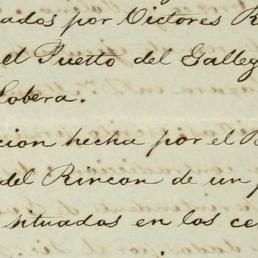 ados por Victores R
el Puerto del Galleg
Lobera.
cion hecha por el B
del Rincon de un p
situados en los ce